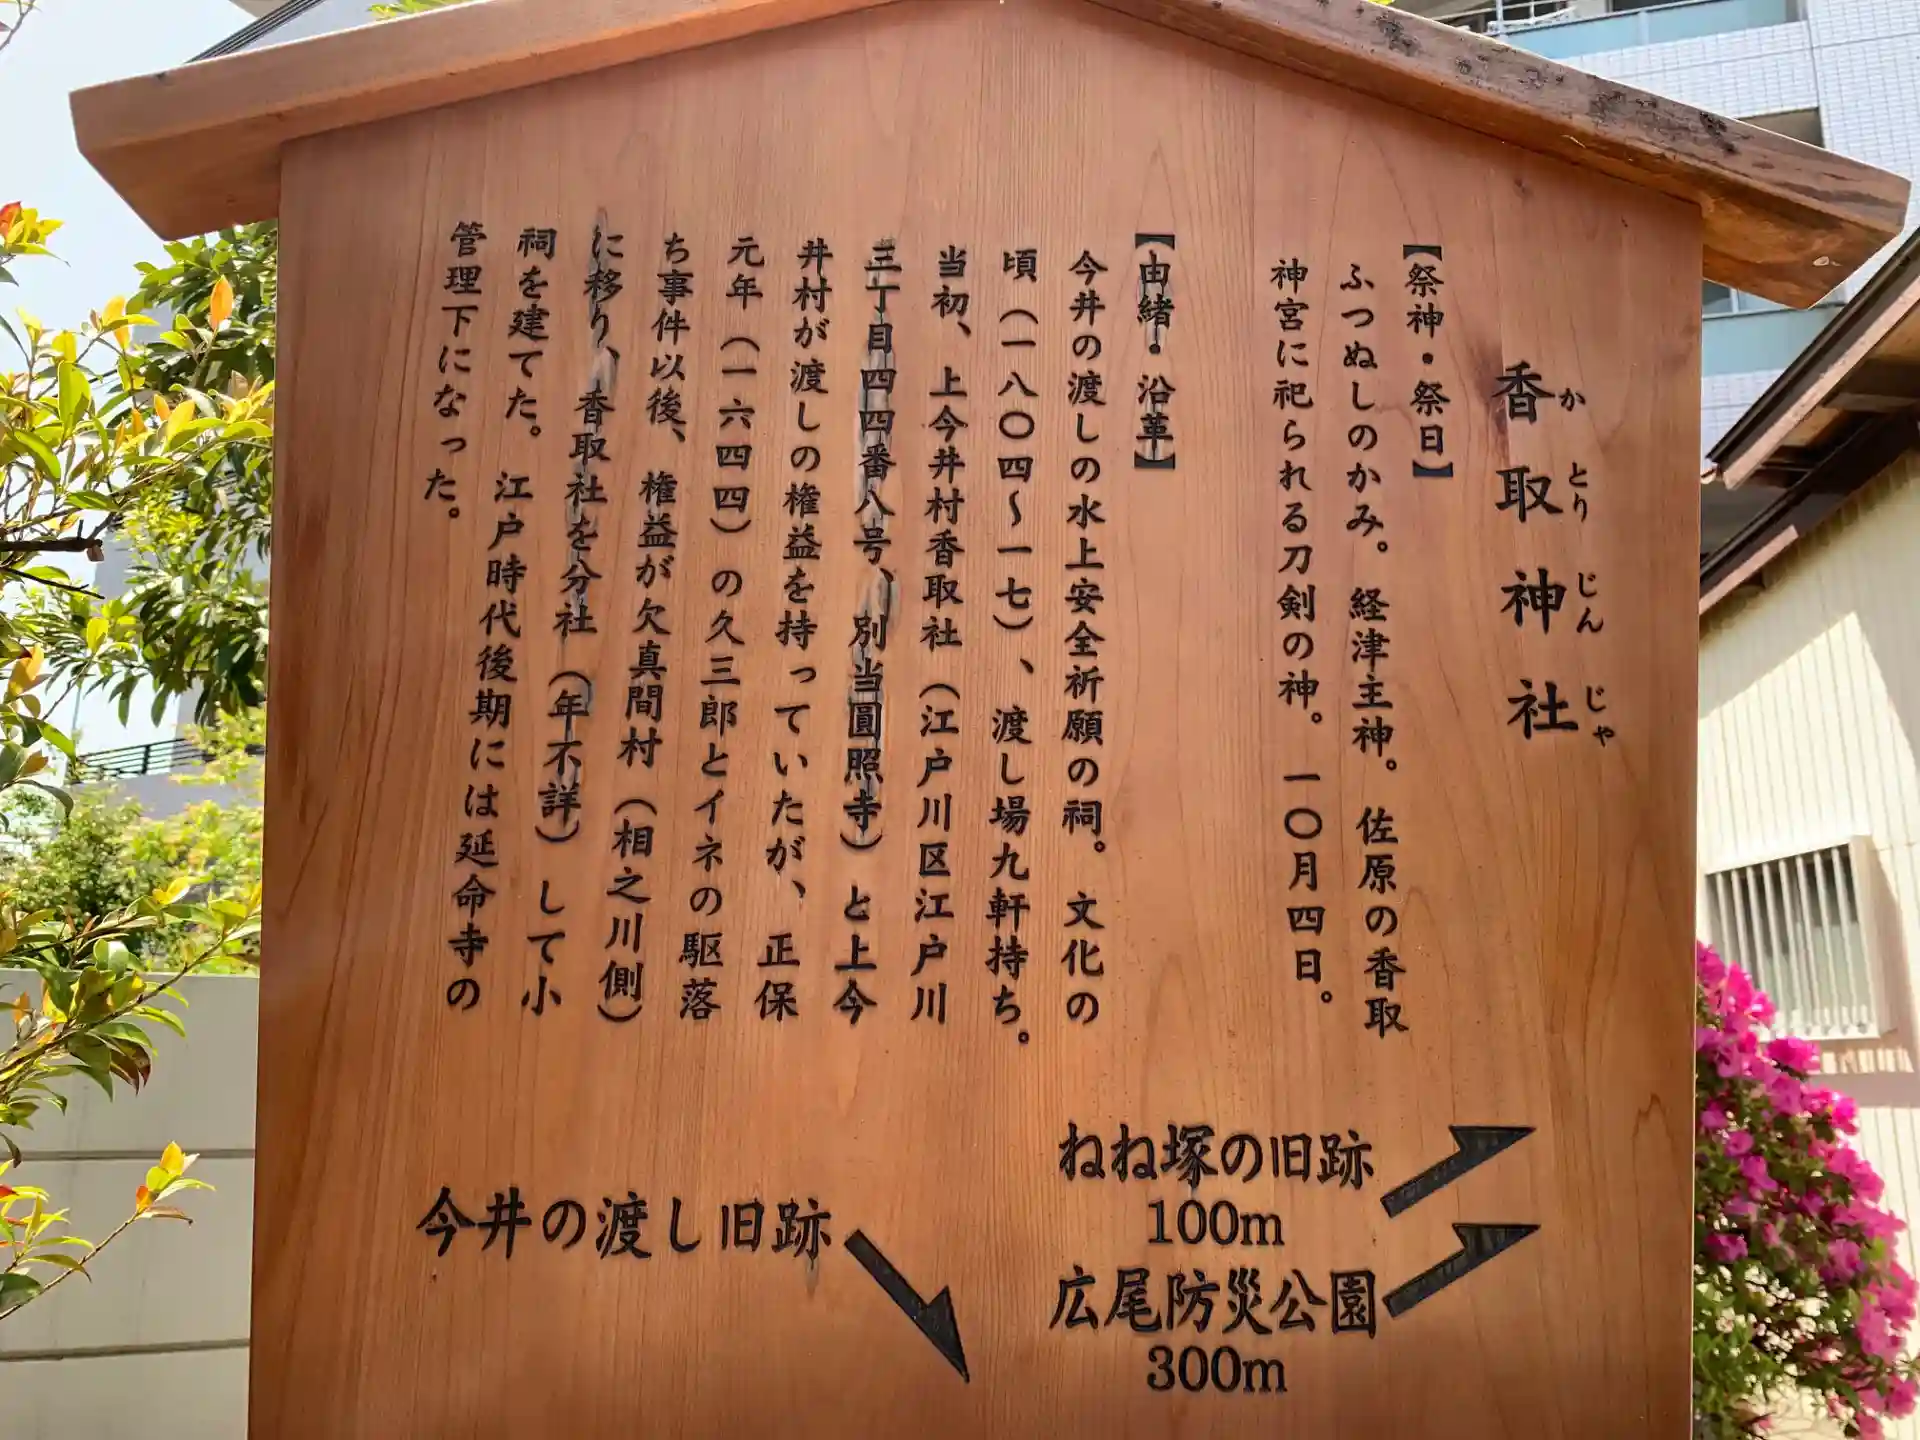 香取神社
かとりじんじゃ
【祭神・祭日】
ふつぬしのかみ。経津主神。佐原の香取
神宮に祀られる刀剣の神。一〇月四日。
【由緒・沿革】
今井の渡しの水上安全祈願の祠。文化の
頃（一八〇四〜一七）、渡し場九軒持ち。
当初、上今井村香取社（江戸川区江戸川
三丁目四四番八号、別当圓照寺）と上今
井村が渡しの権益を持っていたが、正保
元年（一六四四）の久三郎とイネの駆落
ち事件以後、権益が欠真間村（相之川側）
に移り、香取社を分社（年不詳）して小
祠を建てた。江戸時代後期には延命寺の
管理下になった。
ねね塚の旧跡
100m
広尾防災公園
300m
今井の渡し旧跡